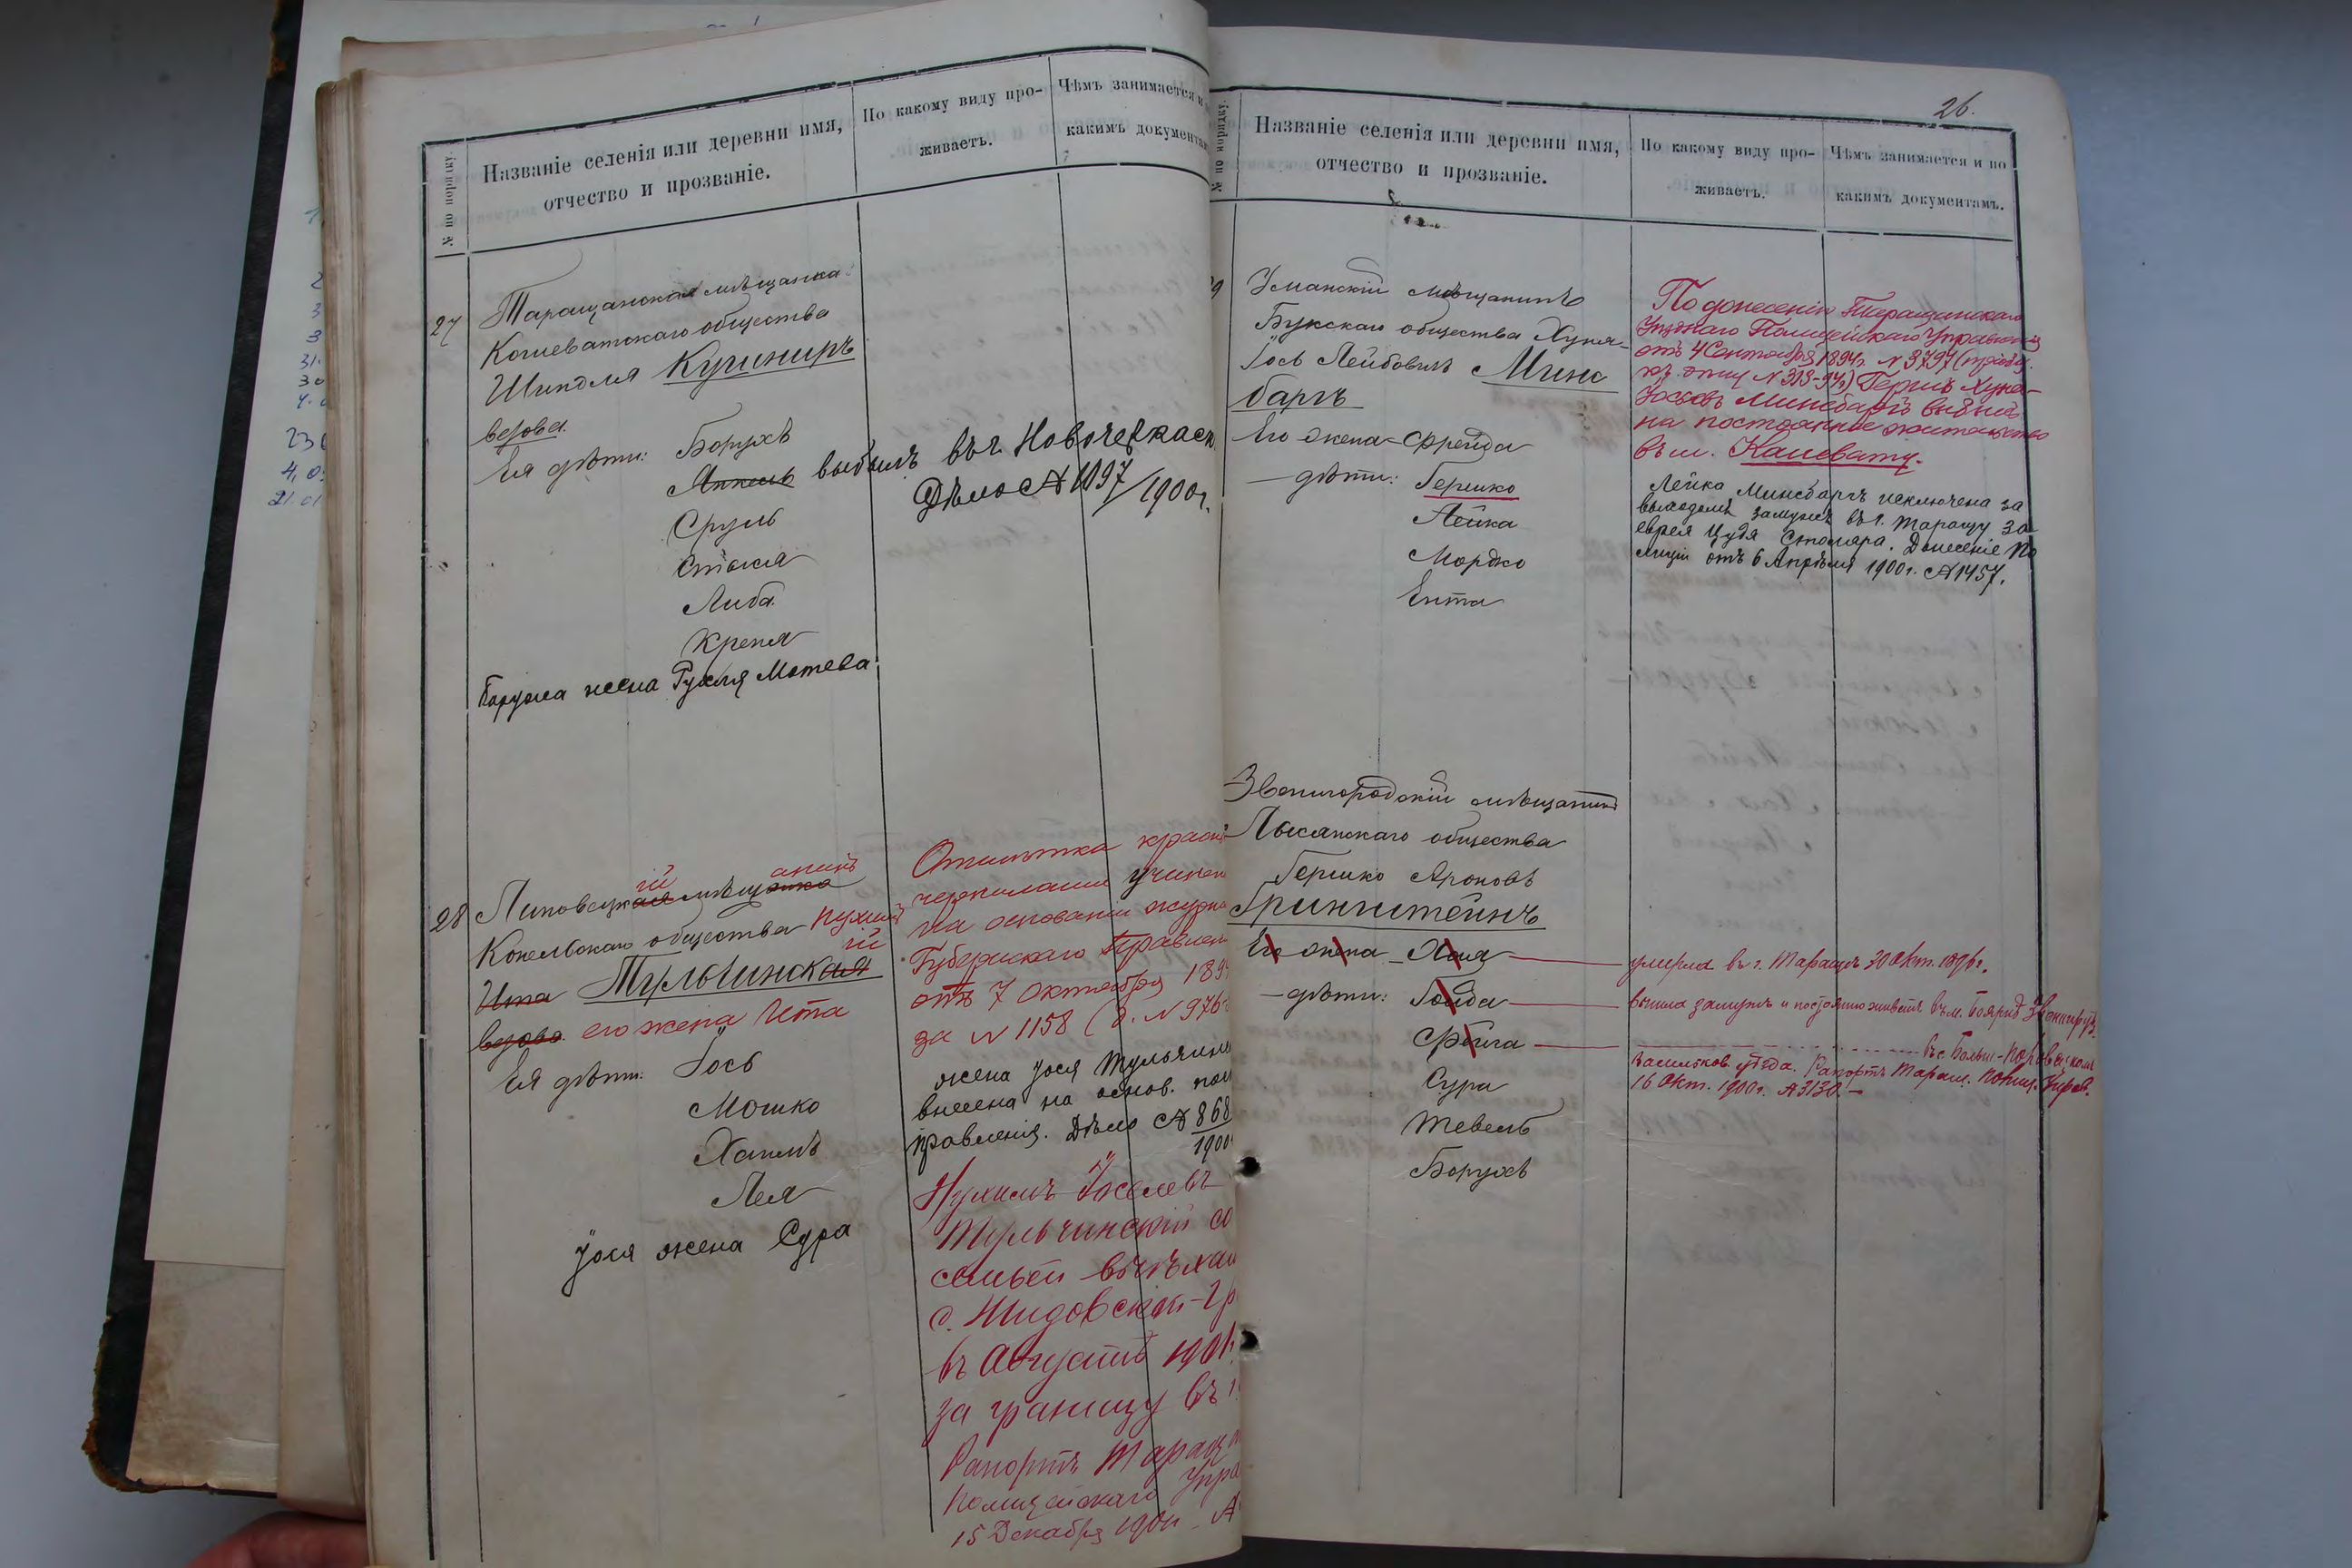 № по порядку.
Названіе селенія или деревни имя,
отчество и прозваніе.
По какому виду про-
живаетъ.
Чѣмъ занимается и
какимъ документам
27
Таращанская мѣщанка
Кошеватскаго общества
Шиндля Кушниръ
Ея дѣти: Борухъ
выбылъ въ г. Новочеркаск
Дѣло № 1097/1900 г.
Сруль
Стыся
Либа
Крейня
Боруха жена Рухля Мотева
28 Липовецкая мѣщанка
гій анинъ
Конельскаго общества Нухимъ
Ита Тульчинская
гій
его жена Ита
Ея дѣти: Іось
Мошко
Хаимъ
Лея
Іося жена Сура
Отмѣтка красн
чернилами учинен
на основаніи журна
Губернскаго Правлен
отъ 7 Октября 189
за № 1158 (д. № 976
жена Іося Тульчинс
внесена на основ. пол
правленія. Дѣло № 868
1900
Нухимъ Іоселевъ
Тульчинскій со
семьей выѣхал
с. Жидовской-Гр
въ Августѣ 1901
за границу въ
Рапортъ Таращ
Полицейскаго Упра
15 Декабря 1901 №
26.
№ по порядку.
Названіе селенія или деревни имя,
отчество и прозваніе.
По какому виду про-
живаетъ.
Чѣмъ занимается и по
какимъ документамъ.
9
Уманскій мѣщанинъ
Букскаго общества Хуна-
Іось Лейбовъ Минс
баргъ
Его жена - Фрейда
- дѣти: Гершко
Лейка
Мордко
Ента
По донесенію Таращанскаго
Уѣзднаго Полицейскаго Управленія
отъ 4 Сентября 1894 г. № 3797
Гершъ Хуна-
Іосевъ Минсбаргъ выбылъ
на постоянное жительство
въ м. Кашевату.
Лейка Минсбаргъ исключена за
выходомъ замужъ въ г. Таращу за
еврея Цудя Столяра. Донесеніе По
лиціи отъ 6 Апрѣля 1900 г. № 1457.
Звенигородскій мѣщанинъ
Лысянскаго общества
Гершко Ароновъ
Гринштейнъ
Его жена - Хая
умерла въ г. Таращѣ 20 Окт. 1896 г.
- дѣти: Гольда
вышла замужъ и постоянно живетъ въ м. Бояркѣ Звенигор. у.
Фейга
Сура
Василков. уѣзда. Рапортъ Таращ. Полиц. Управ.
16 Окт. 1900 г. № 3130. -
Тевель
Борухъ